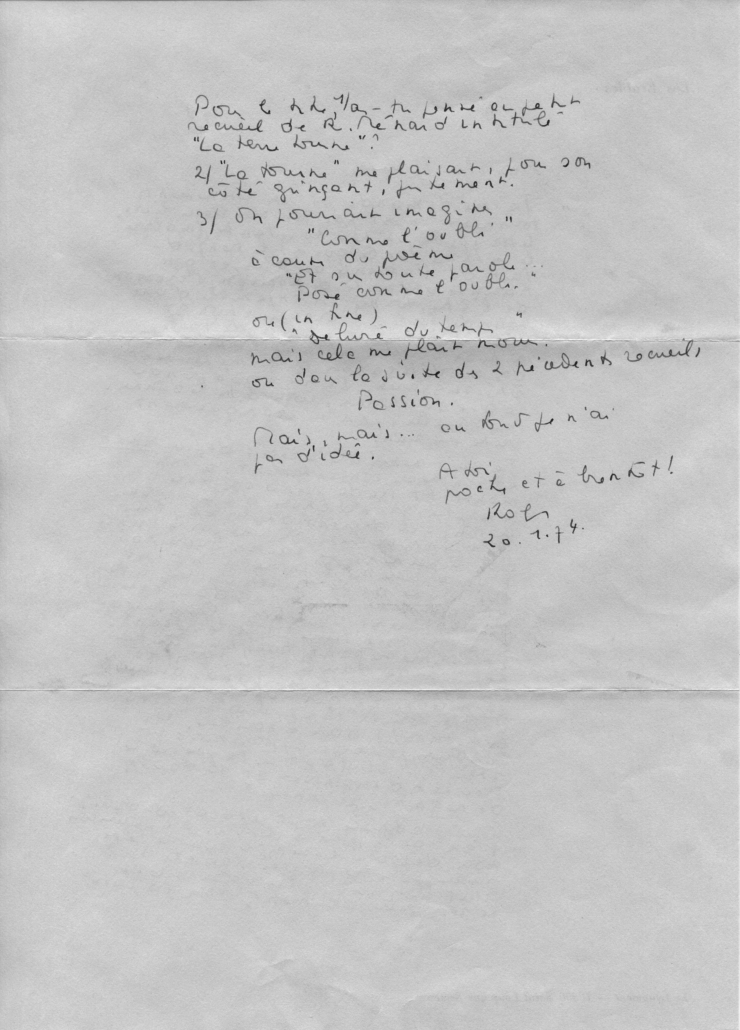 Pour le titre, 1/as-tu pensé au petit
recueil de R. Ménard intitulé
"La terre tourne"?
2/ "La tourne" me plaisait, pour son
côté grinçant, justement.
3/ On pourrait imaginer
"Comme l'oubli"
à cause du poème
"Et sur toute parole...
Posé comme l'oubli."
ou (in fine)
"Délivré du temps"
mais cela me plaît moins.
ou dans la suite des 2 précédents recueils
Passion.
Mais, mais... au fond je n'ai
pas d'idée.
A toi,
proche et à bientôt!
20.1.74.